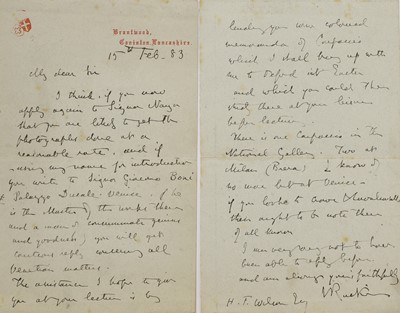 Brantwood,
Coniston, Lancashire.
15th Feb. 83
My dear Sir
I think, if you now
apply again to Signor Naya
that you are likely to get the
photographs done at a
reasonable rate. and if
using my name for introduction
you write to Signr Giacomo Boni
Palazzo Ducale. Venice. he
is the Master of the works there
and a man of consummate genius
and goodness) you will get
courteous reply concerning all
Venetian matters.
The assistance I hope to give
you at your lecture is by
lending you some coloured
memoranda of Carpaccio
which I shall bring up with
me to Oxford after Easter
and which you could then
at your leisure
before lecture.
There is one Carpaccio in the
National Gallery. Two at
Milan (Brera) I know of
no more but at Venice -
if you look to Crowe & Cavalcaselle
there ought to be note there
of all known
I am very sorry not to have
been able to reply before
and am always yours faithfully
J Ruskin
H. F. Wilson Esq